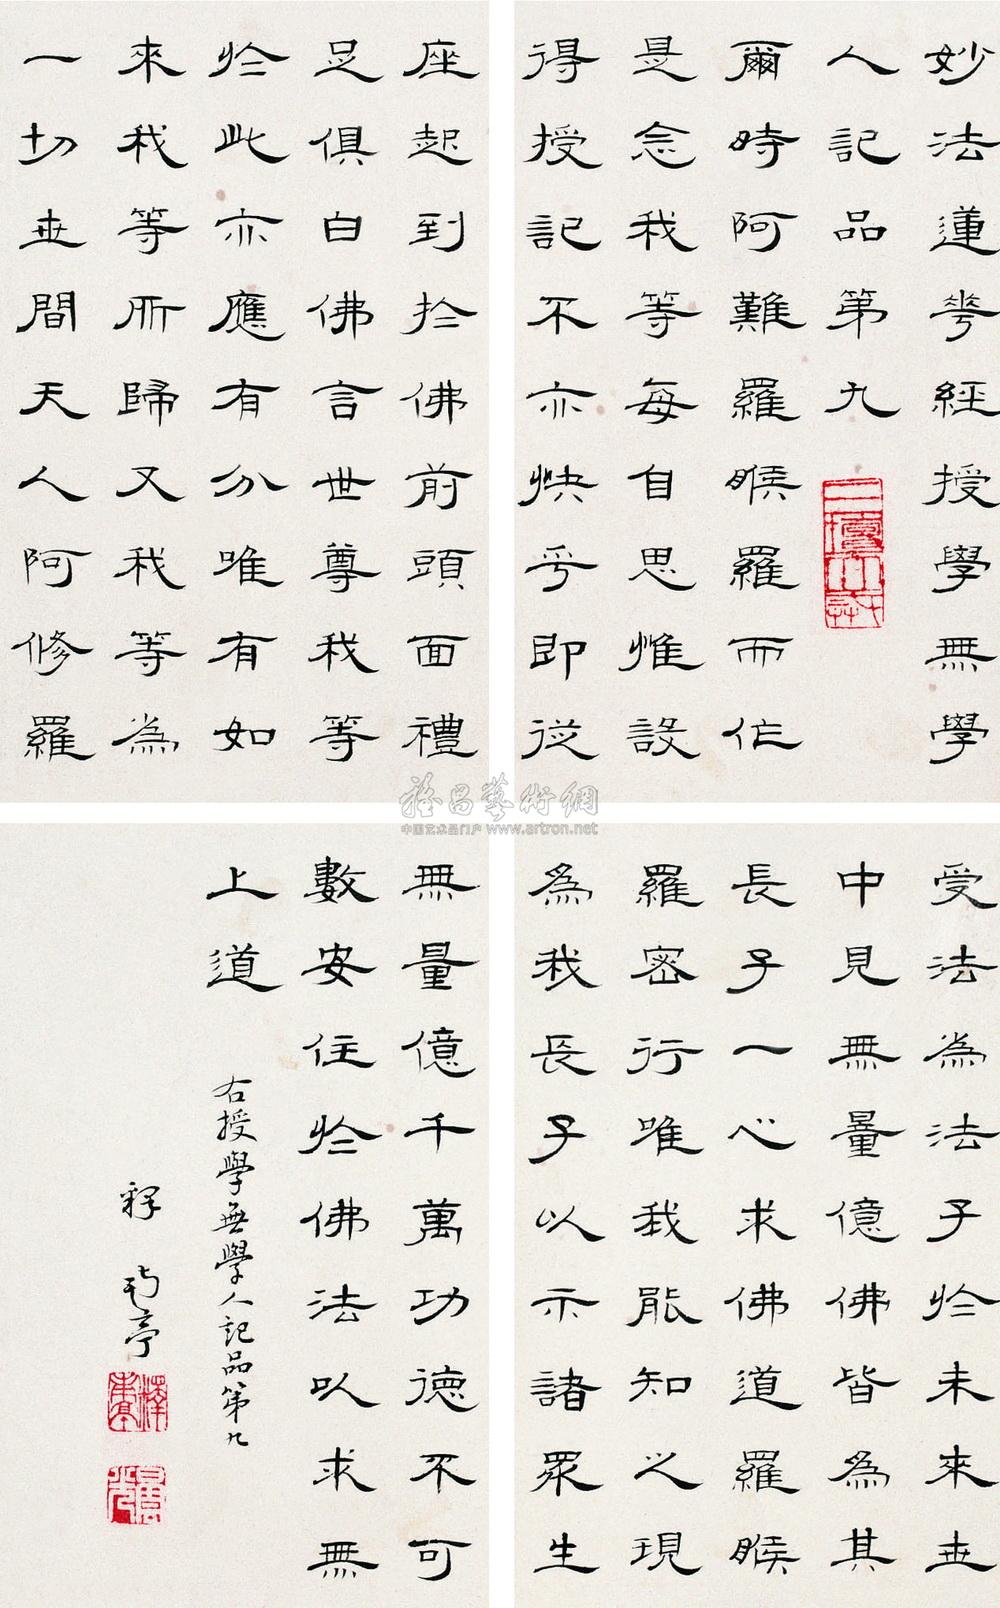 妙法蓮華經授學無學
人記品第九
爾時阿難羅睺羅而作
是念我等每自思惟設
得授記不亦快乎即從
座起到於佛前頭面禮
足俱白佛言世尊我等
於此亦應有分唯有如
來我等所歸又我等為
一切世間天人阿修羅
受法為法子於未來世
中見無量億佛皆為其
長子一心求佛道羅睺
羅密行唯我能知之現
為我長子以示諸眾生
無量億千萬功德不可
數安住於佛法以求無
上道
右授學無學人記品第九
釋 亭
雅昌藝術網
中国艺术品门户 www.artron.net